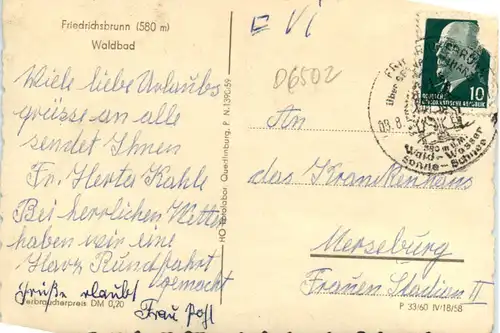 Friedrichsbrunn (580 m)
Waldbad
Viele liebe Urlaubs
grüsse an alle
sendet Ihnen
Fr. Herta Kahle
Bei herrlichen Wetter
haben wir eine
Harz Rundfahrt
gemacht
Grüße erlaubt
Frau Pohl
Verbraucherpreis DM 0,20
HO Fotolabor Quedlinburg, P. N. 1390/59
VI
D6502
An
das Krankenhaus
Merseburg
Frauen Station II
P 33/60 IV/18/58
10
DEUTSCHE
DEMOKRATISCHE REPUBLIK
08.8.
580 m ü.M.
Wald-Wasser
Sonne-Schnee